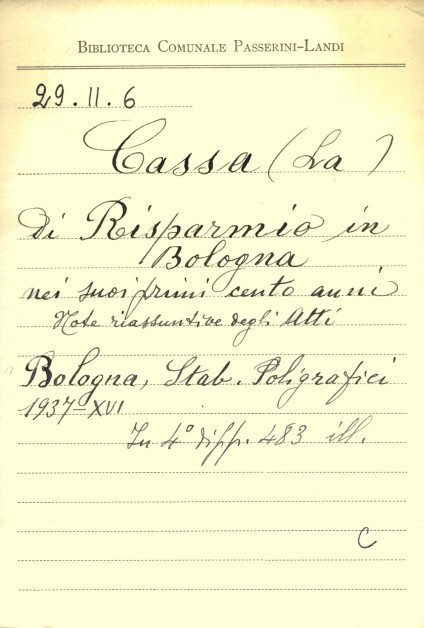 BIBLIOTECA COMUNALE PASSERINI-LANDI
29.II.6
Cassa (La)
di Risparmio in
Bologna
nei suoi primi cento anni
Note riassuntive degli Atti
Bologna, Stab. Poligrafici
1937-XVI
In 4° di pp. 483 ill.
C